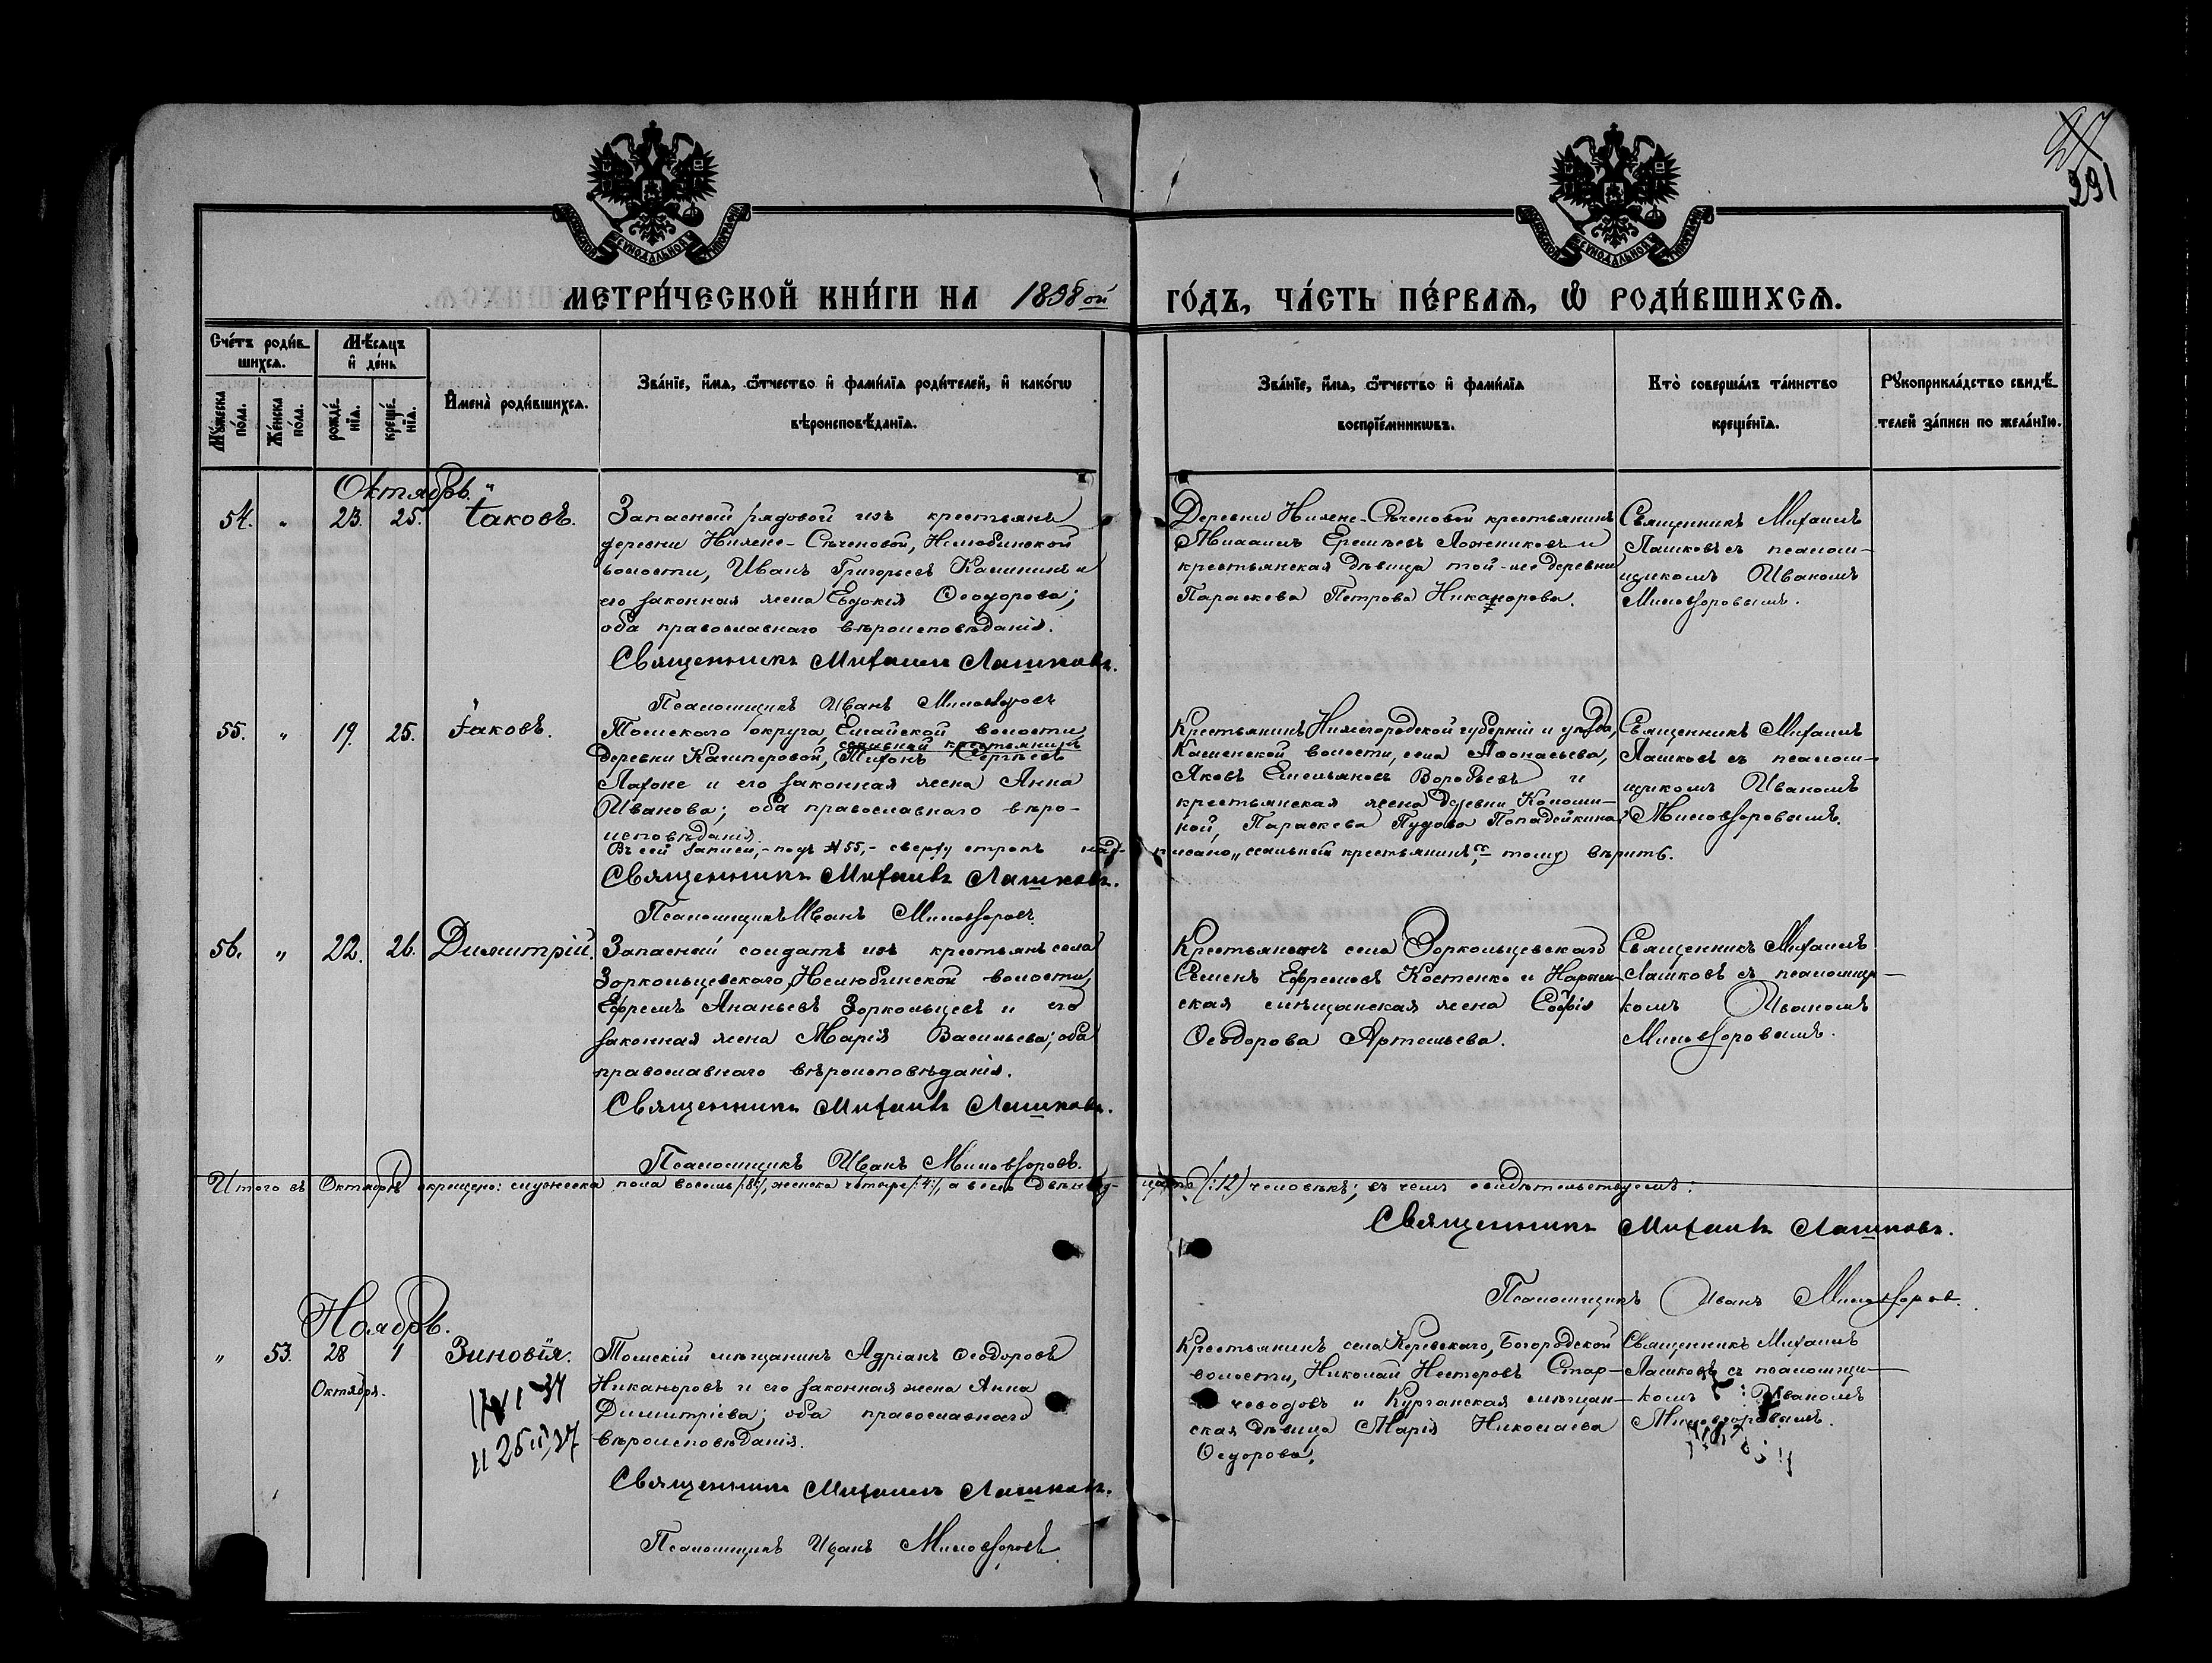 291
МОСКОВСКОЙ СѴНОДАЛЬНОЙ ТИПОГРАФІИ
МОСКОВСКОЙ СѴНОДАЛЬНОЙ ТИПОГРАФІИ
МЕТРИ́ЧЕСКОЙ КНИ́ГИ НА 1898 ой ГО́ДЪ, ЧА́СТЬ ПЕ́РВАѦ, Ѡ҆ РОДИ́ВШИХСѦ.
Сче́тъ роди́в-
шихсѧ.
Мѣ́сѧцъ
и҆ де́нь
Мꙋ́жеска по́ла.
Же́нска по́ла.
рожде́нїѧ.
креще́нїѧ.
И҆мена̀ роди́вшихсѧ.
Зва́нїе, и҆́мѧ, ѻ҆́тчество и҆ фами́лїѧ роди́телей, и҆ како́гѡ
вѣроисповѣ́данїѧ.
Зва́нїе, и҆́мѧ, ѻ҆́тчество и҆ фами́лїѧ
воспрїе́мникѡвъ.
Кто̀ соверша́лъ та́инство
креще́нїѧ.
Рꙋкоприкла́дство свидѣ́-
телей за́писи по жела́нїю.
Октябрь.
54. „ 23. 25. Іаковъ.
Запасный рядовой изъ крестьянъ
деревни Нижне-Сѣченовой, Нелюбинской
волости, Иванъ Григорьевъ Калининъ и
его законная жена Евдокія Ѳеодорова;
оба православнаго вѣроисповѣданія.
Священникъ Михаилъ Лашковъ.
Псаломщикъ Иванъ Миловзоровъ
Деревни Нижне-Сѣченовой крестьянинъ
Михаилъ Ложниковъ и
крестьянская дѣвица той-же деревни
Параскева Петрова Никанорова.
Священникъ Михаилъ
Лашковъ съ псалом-
щикомъ Иваномъ
Миловзоровымъ.
55. „ 19. 25. Іаковъ.
Томскаго округа, Елгайской волости
ссыльный крестьянинъ
деревни Каштеровой, Тихонъ Сергѣевъ
и его законная жена Анна
Иванова; оба православнаго вѣро-
исповѣданія.
Въ сей записи,- подъ № 55,- сверху строкъ над-писано „ссыльный крестьянинъ“, тому вѣрить.
Священникъ Михаилъ Лашковъ.
Псаломщикъ Иванъ Миловзоровъ
Крестьянинъ Нижегородской губерніи и уѣзда,
волости, села Аѳонасьева,
Яковъ Емельяновъ Воробьевъ и
крестьянская жена деревни
Параскева Пудова Попадейкина.
Священникъ Михаилъ
Лашковъ съ псалом-
щикомъ Иваномъ
Миловзоровымъ.
56. „ 22. 26. Димитрій.
Запасный солдатъ изъ крестьянъ села
Зоркольцевскаго, Нелюбинской волости,
Ефремъ Ананьевъ Зоркольцевъ и его
законная жена Марія Васильева; оба
православнаго вѣроисповѣданія.
Священникъ Михаилъ Лашковъ.
Псаломщикъ Иванъ Миловзоровъ.
Крестьянинъ села Зоркольцевскаго
Семенъ Ефремовъ Костенко и Нарым-
ская мѣщанская жена Софія
Ѳеодорова Артемьева.
Священникъ Михаилъ
Лашковъ съ псаломщи-
комъ Иваномъ
Миловзоровымъ.
Итого въ Октябрѣ окрещено: мужеска пола восемь /:8:/, женска четыре /:4:/, а всего двѣнад-цать (:12) человѣкъ; въ чемъ свидѣтельствуемъ:
Священникъ Михаилъ Лашковъ.
Псаломщикъ Иванъ Миловзоровъ.
Ноябрь.
„ 53. 28 1 Зиновія.
Октября.
Томскій мѣщанинъ Адріанъ Ѳеодоровъ
Никаноровъ и его законная жена Анна
Димитріева; оба православнаго
вѣроисповѣданія.
Священникъ Михаилъ Лашковъ.
Псаломщикъ Иванъ Миловзоровъ.
Крестьянинъ села Богородской
волости, Николай Нестеровъ Стар-
чеводовъ и Курганская мѣщан-
ская дѣвица Марія Николаева
Ѳедорова.
Священникъ Михаилъ
Лашковъ съ псаломщи-
комъ Иваномъ
Миловзоровымъ.